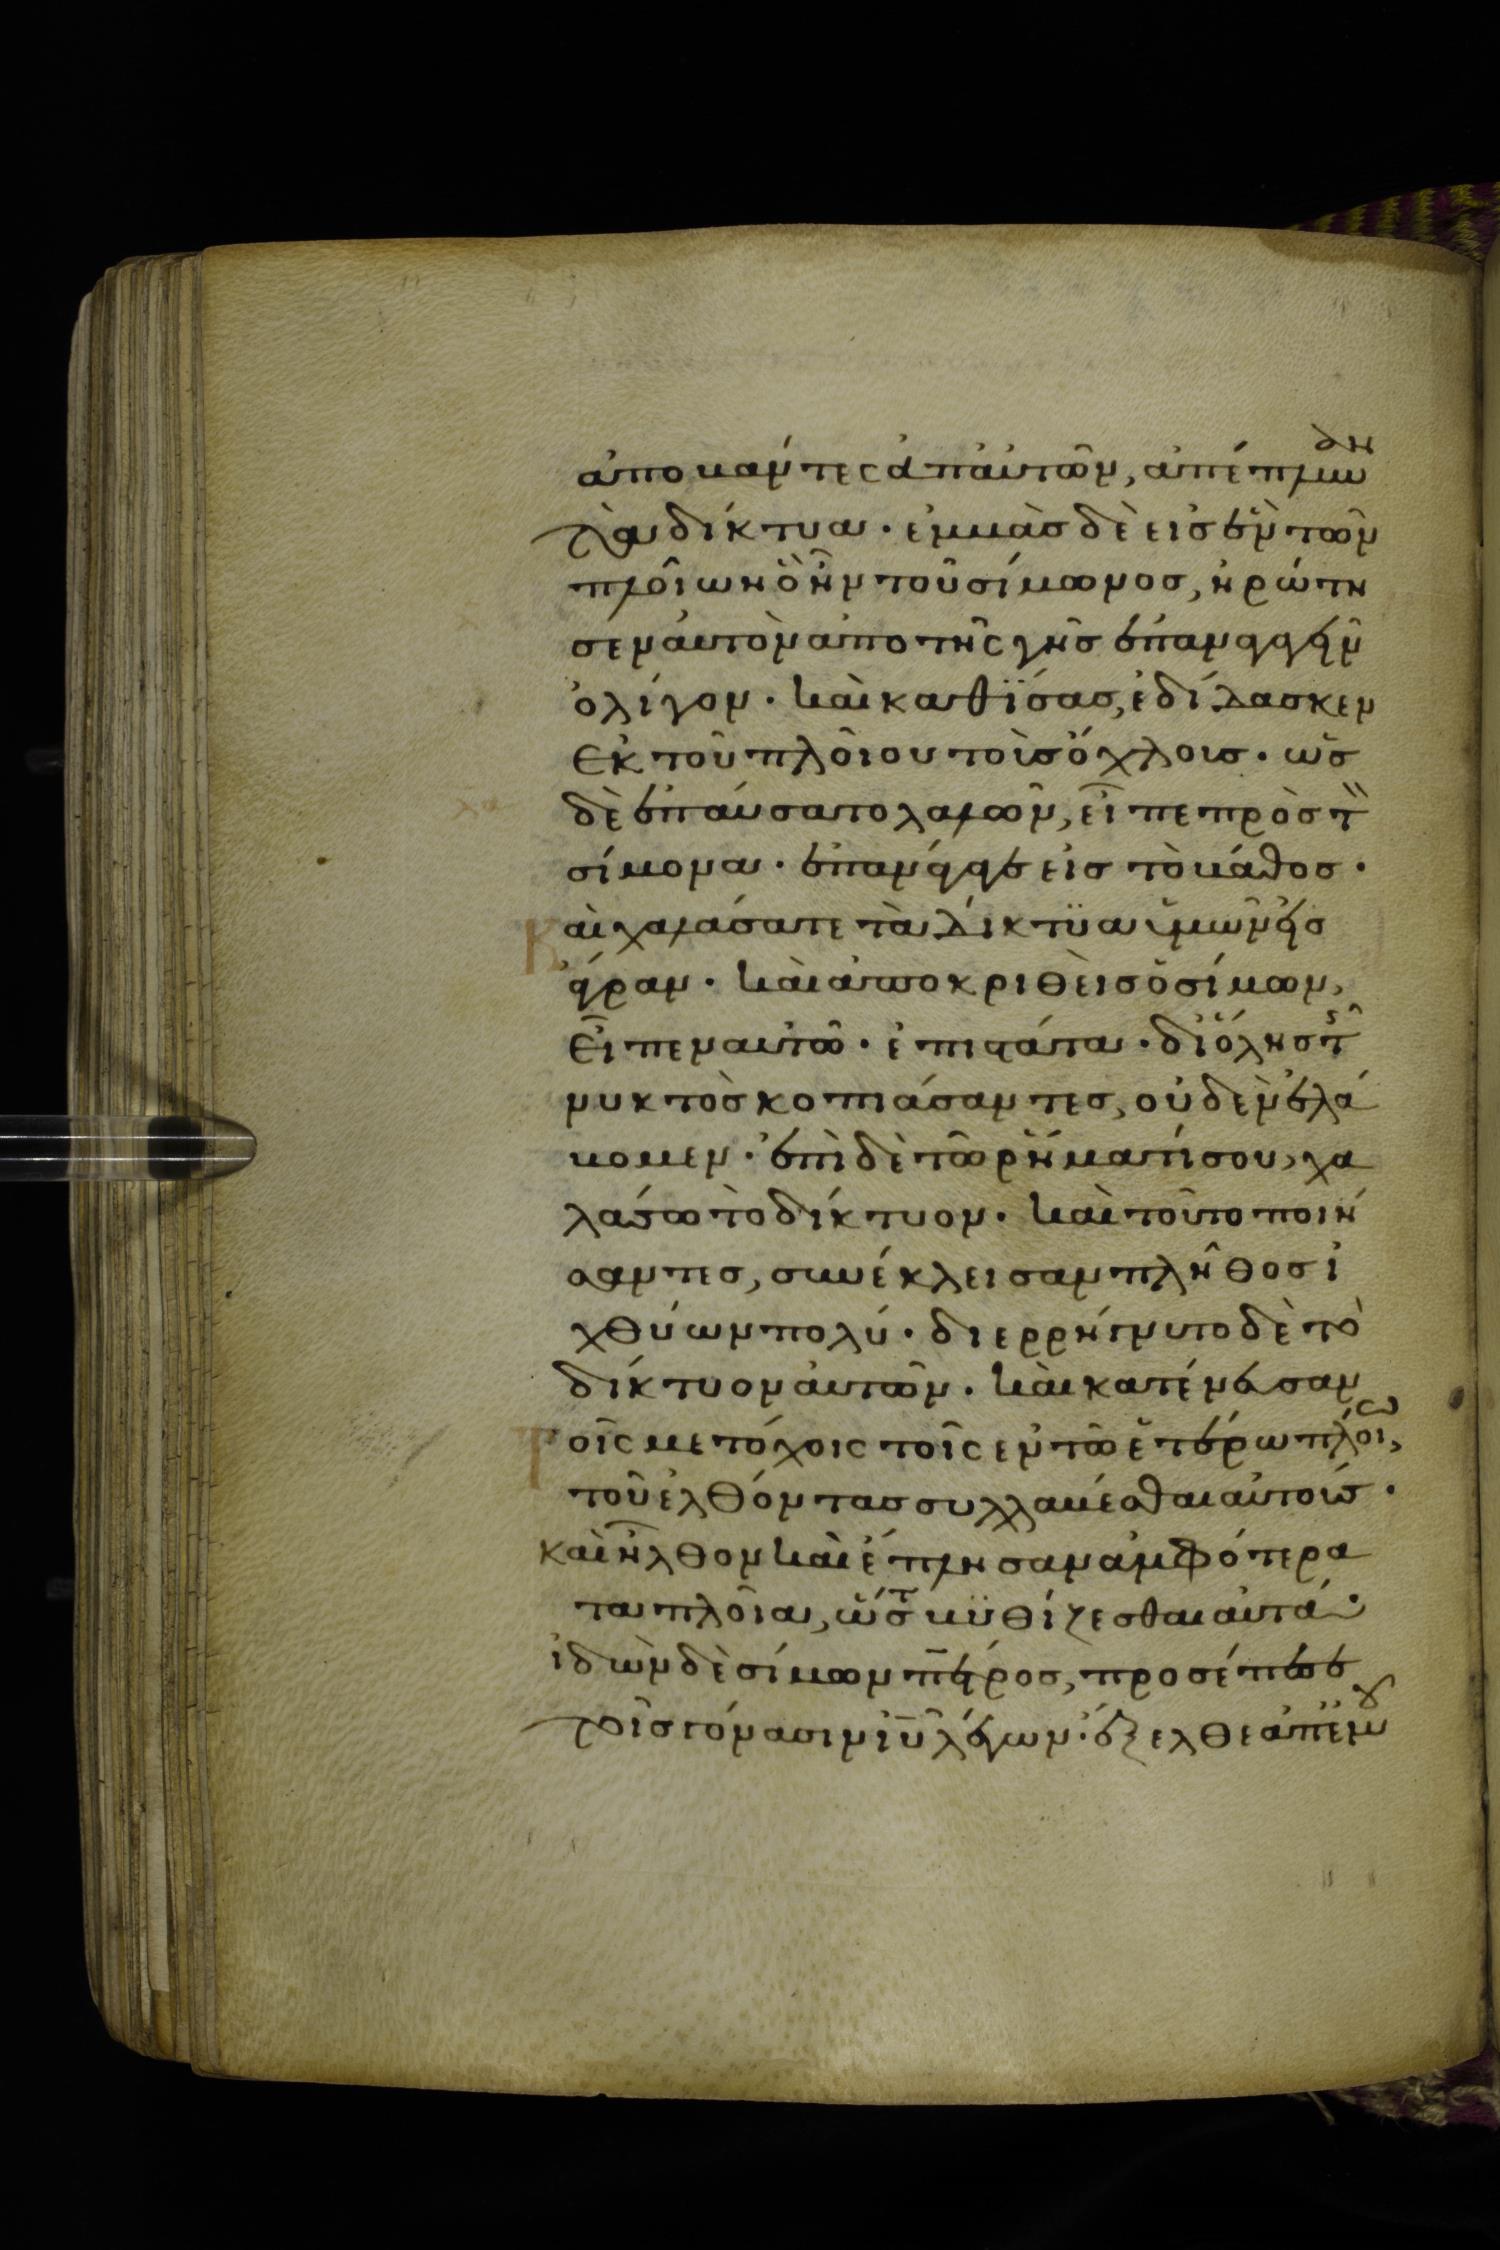 ἀποβάντες ἀπ' αὐτῶν, ἀπέπλυναν δὴ
τὰ δίκτυα · ἐμβὰς δὲ εἰς ἓν τῶν
πλοίων ὃ ἦν τοῦ σίμωνος, ἠρώτη
σεν αὐτὸν ἀπο τῆς γῆς ἐπαναγαγεῖν
ὀλίγον · καὶ καθΐσας, ἐδίδασκεν
Ἐκ τοῦ πλοίου τοὺς ὄχλους · ὡς
δὲ ἐπαύσατο λαλῶν, εἶπε πρὸς τὸν
σίμονα · ἐπανάγαγε εἰς τὸ βάθος ·
Καὶ χαλάσατε τὰ δίκτϋα ὑμῶν εἰς
ἄγραν · καὶ ἀποκριθεὶς ὁ σίμων,
Εἶπεν αὐτῶ · ἐπιστάτα · δι' ὅλης τῆς
νυκτὸς κοπιάσαντες, οὐδὲν ἐλά
βομεν · ἐπὶ δὲ τῶ ῥήματί σου, χα
λάσω τὸ δίκτυον · καὶ τοῦτο ποιή
σαντες, συνέκλεισαν πλῆθος ἰ
χθύων πολύ · διερρήγνυτο δὲ τὸ
δίκτυον αὐτῶν · καὶ κατένευσαν
Τοῖς μετόχοις τοῖς ἐν τῶ ἑτέρω πλοίω,
τοῦ ἐλθόντας συλλαβέσθαι αὐτοῖς ·
Καὶ ἦλθον καὶ ἔπλησαν ἀμφότερα
τα πλοῖα, ὥστε βϋθίζεσθαι αὐτά ·
ἰδὼν δὲ σίμων πέτρος, προσέπεσε
τοῖς γόνασιν ἰ̅υ̅ λέγων · ἔξελθε ἀπ' ἐμοῦ